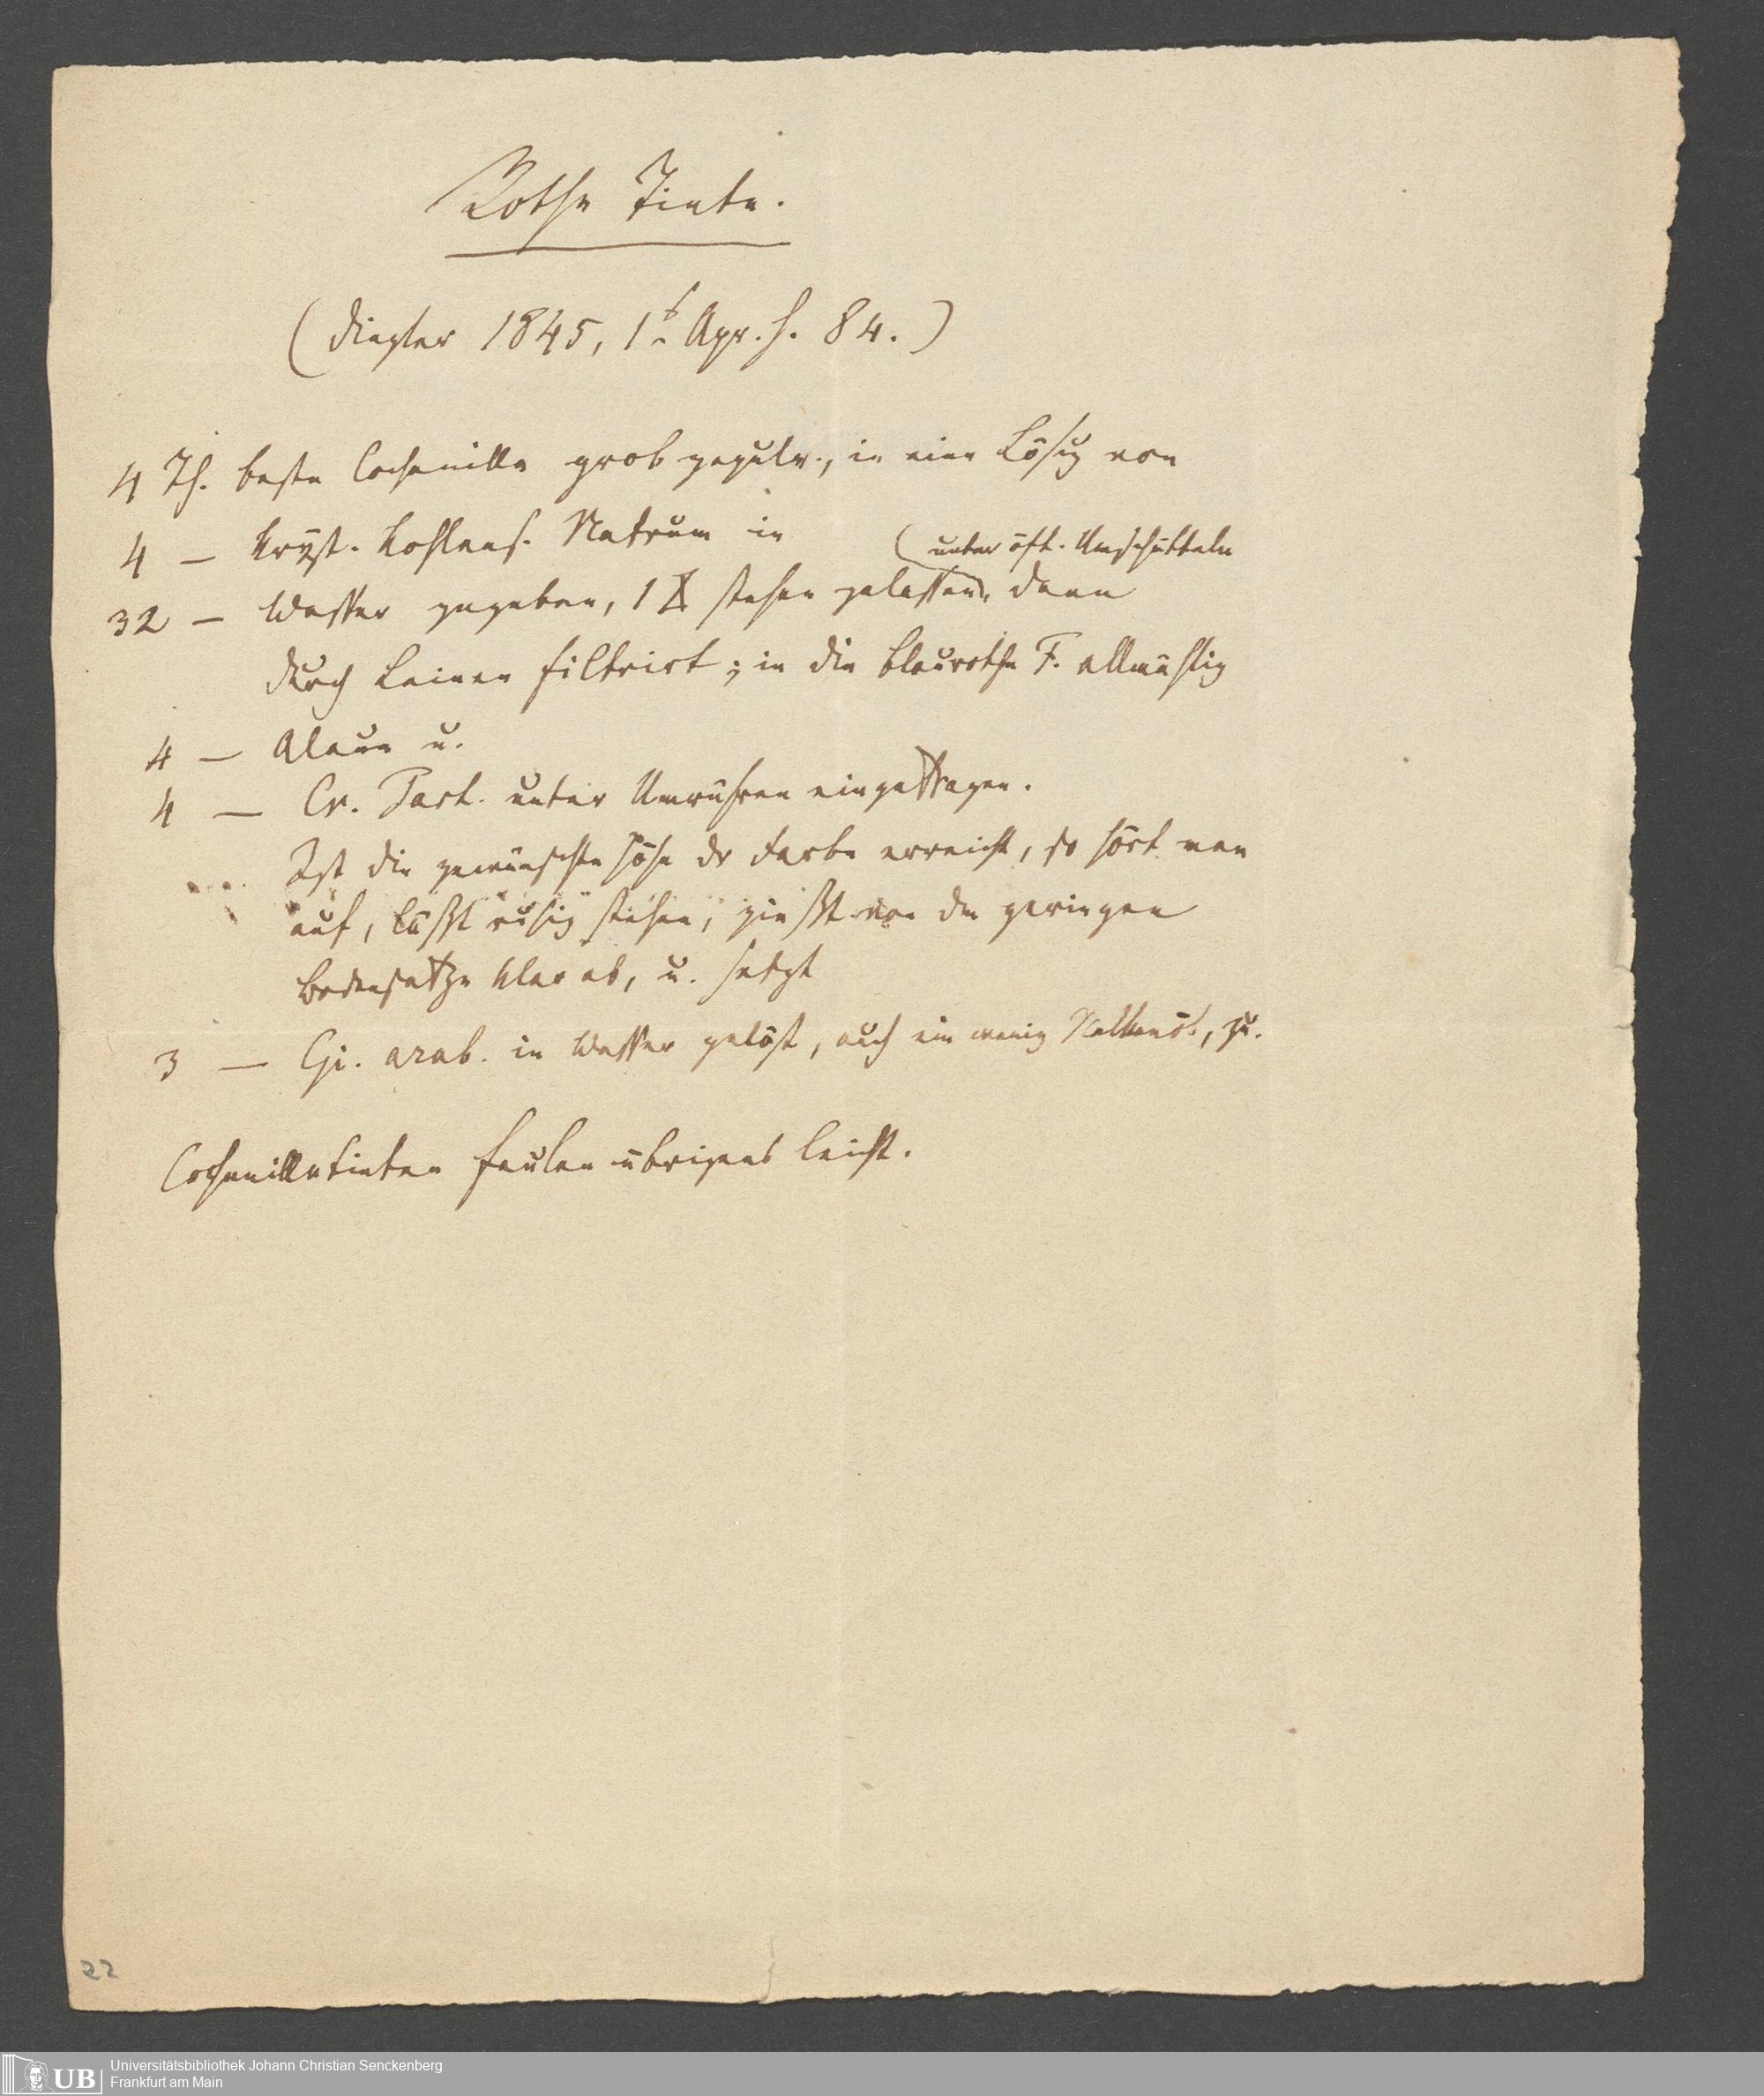 Rothe Tinte.
(Dingler 1845, 1s Apr. H. 84.)
4 Th. beste Cochenille grob gepulv., in einer Lösg von
4 — kryst. kohlens. Natrum in
(unter öft. Umschütteln
32 — Wasser gegeben, 1 stehen gelassen, dann
durch Leinen filtrirt; in die blaurothe F. allmählig
4 — Alaun u.
4 — Cr. Tart. unter Umrühren eingetragen.
Ist die gewünschte Höhe dr Farbe erreicht, so hört man
auf, läßt ruhig stehen, gießt von dm geringen
Bodensatze klar ab, u. setzt
3 — Gi. arab. in Wasser gelöst, auch ein wenig Nelkenöl, zu.
Cochenilletinten faulen übrigens leicht.
22
UB
Universitätsbibliothek Johann Christian Senckenberg
Frankfurt am Main